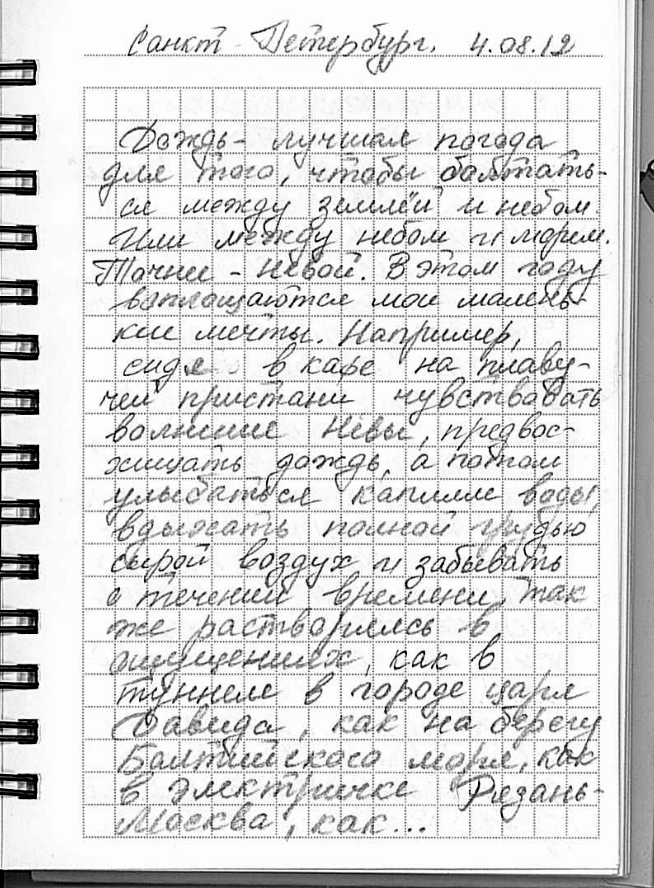 Санкт-Петербург. 4.08.12
Дождь - лучшая погода
для того, чтобы болтать-
ся между землёй и небом.
Или между небом и морем.
Точнее - Невой. В этом году
воплощаются мои малень-
кие мечты. Например,
сидя в кафе на плаву-
чей пристани чувствовать
волнение Невы, предвос-
хищать дождь, а потом
улыбаться каплям воды,
вдыхать полной грудью
сырой воздух и забывать
о течении времени, так
же растворяясь в
ощущениях, как в
туннеле в городе царя
Давида, как на берегу
Балтийского моря, как
в электричке Рязань-
Москва, как...